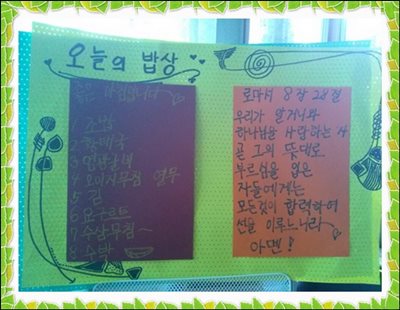 오늘의 밥상
좋은 아침입니다
1 조밥
2 황태국
3
4 오이지무침 열무
5 김
6 요구르트
7 수삼무침~
8 수박
로마서 8장 28절
우리가 알거니와
하나님을 사랑하는 자
곧 그의 뜻대로
부르심을 입은
자들에게는
모든것이 합력하여
선을 이루느니라
아멘!